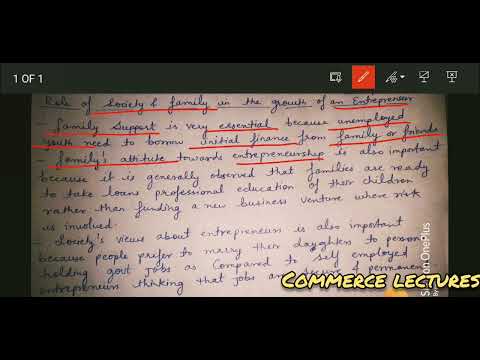 1 OF 1
Role of Society & family in the growth of an Entrepreneur
- Family Support is very essential because unemployed
youth need to borrow unitial finance from family or friends
- Family's attitute towards entrepreneurship is also important
because it is generally observed that families are ready
to take loans professional education of their children
rather than funding a new business venture where risk
is involved.
- Society's views about entrepreneurs is also important
because people prefer to marry their daughters to person
holding govt jobs as compared to self employed
entrepreneurs thinking that jobs are & permanent
Commerce lectures
on OnePlus